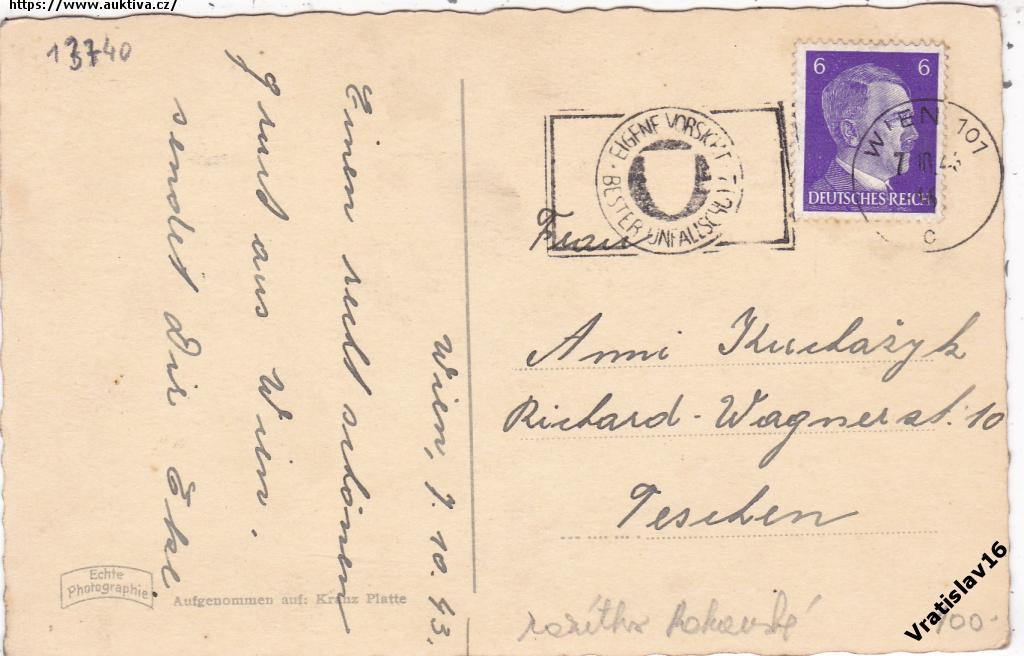 https://www.auktiva.cz/
13740
Wien, 7. 10. 43.
Einen recht schönen
Gruß aus Wien.
sendet Dir
EIGENE VORSICHT
BESTER UNFALLSCHUTZ
6 6
DEUTSCHES REICH
WIEN 101
7
c
Frau
Anni Kuchażyk
Richard-Wagnerst. 10
Teschen
Echte
Photographie
Aufgenommen auf: Kranz Platte
100.-
Vratislav16